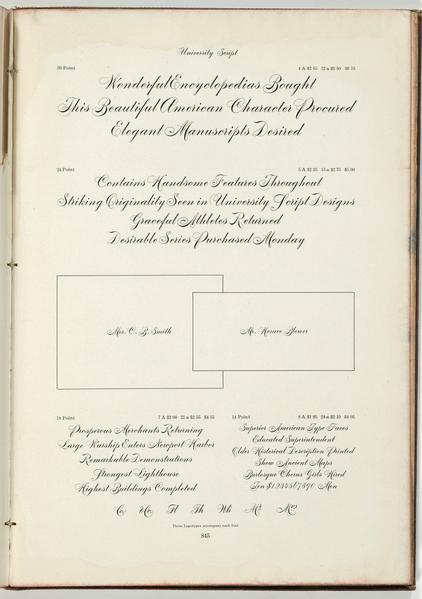 University Script
30 Point 4 A $2 65 12 a $2 50 $5 15
Wonderful Encyclopedias Bought
This Beautiful American Character Procured
Elegant Manuscripts Desired
24 Point 5 A $2 25 15 a $2 75 $5 00
Contains Handsome Features Throughout
Striking Originality Seen in University Script Designs
Graceful Athletes Returned
Desirable Series Purchased Monday
Mrs. C. B. Smith
Mr. Horace Blower
18 Point 7 A $2 00 22 a $2 55 $4 55
Prosperous Merchants Returning
Large Warship Enters Newport Harbor
Remarkable Demonstrations
Strongest Lighthouse
Highest Buildings Completed
14 Point 8 A $1 95 24 a $2 10 $4 05
Superior American Type Faces
Educated Superintendent
Older Historical Description Printed
Show Ancient Maps
Burlesque Chorus Girls Hired
Ten $1234567890 Men
Co. Th Wh Mr Mrs
These Logotypes accompany each font
845